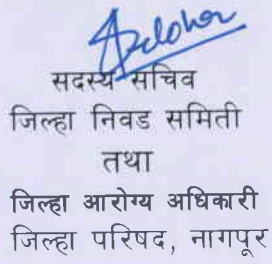 सदस्य सचिव
जिल्हा निवड समिती
तथा
जिल्हा आरोग्य अधिकारी
जिल्हा परिषद, नागपूर